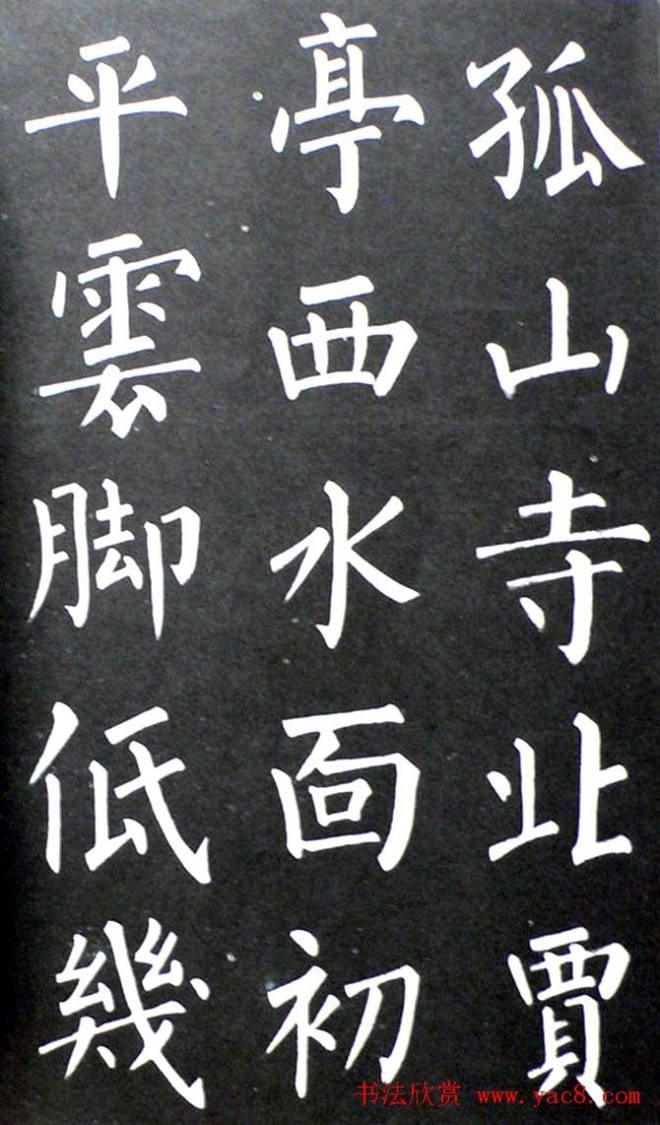 孤山寺北賈
亭西水面初
平雲脚低幾
书法欣赏 www.yac8.com